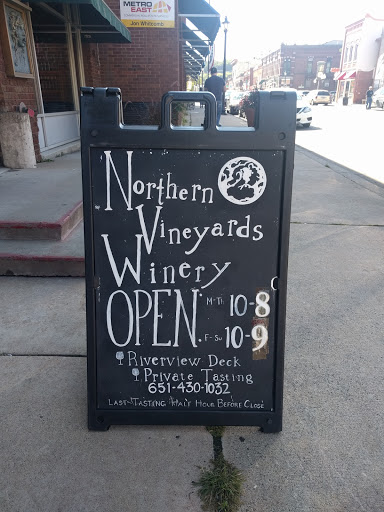 METRO
EAST
Jon Whitcomb
Northern
Vineyards
Winery
OPEN. M-Th 10-8
F-Su 10-9
Riverview Deck
Private Tasting
651-430-1032
Last Tasting Half Hour Before Close